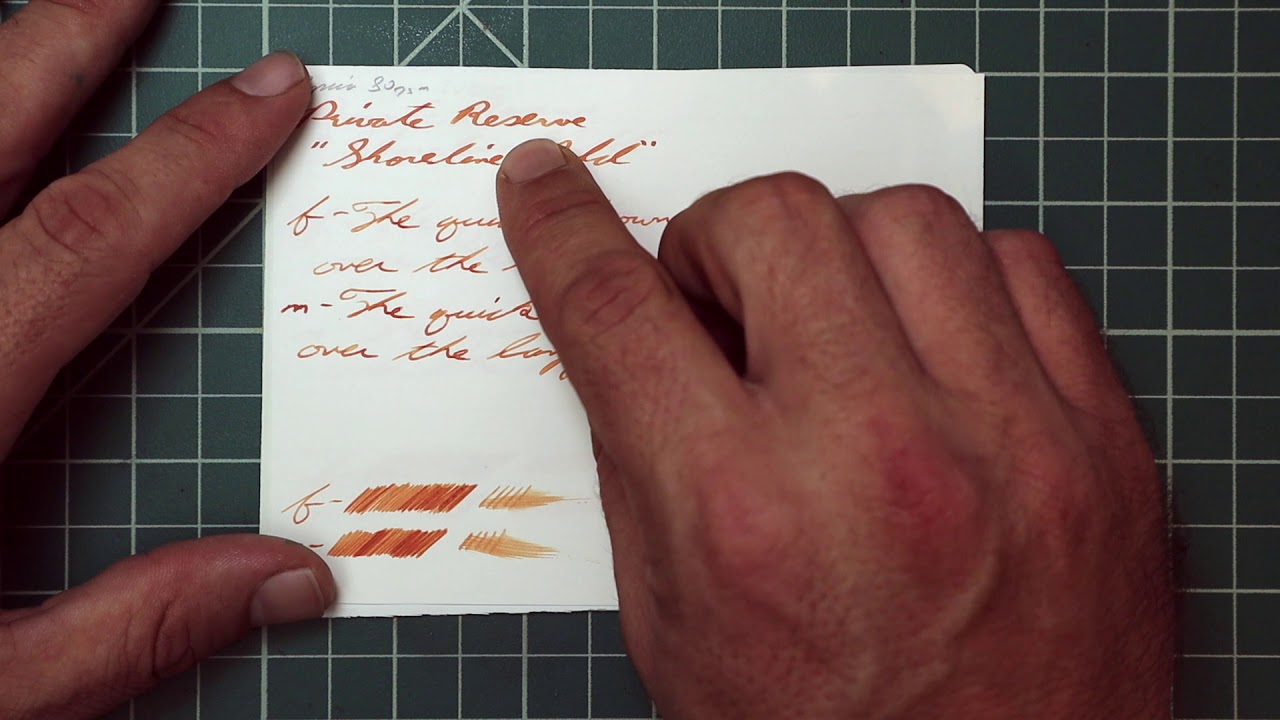 80gsm
Private Reserve
"Shoreline
f - The
over the
m - The quick
over the lazy
f -
-